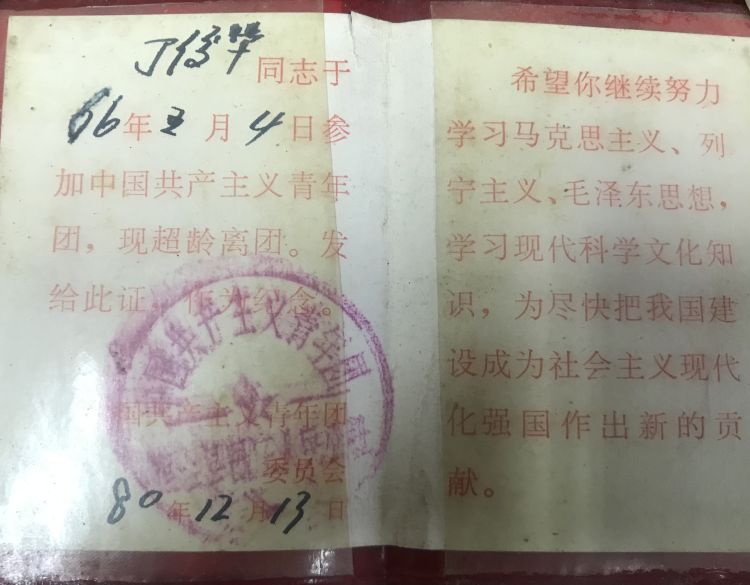 丁 同志于
66年 月4日参
加中国共产主义青年
团，现超龄离团。发
给此证，作为纪念。
国共产主义青年团
国共产主义青年团
委员会
80年12月13日
希望你继续努力
学习马克思主义、列
宁主义、毛泽东思想，
学习现代科学文化知
识，为尽快把我国建
设成为社会主义现代
化强国作出新的贡
献。